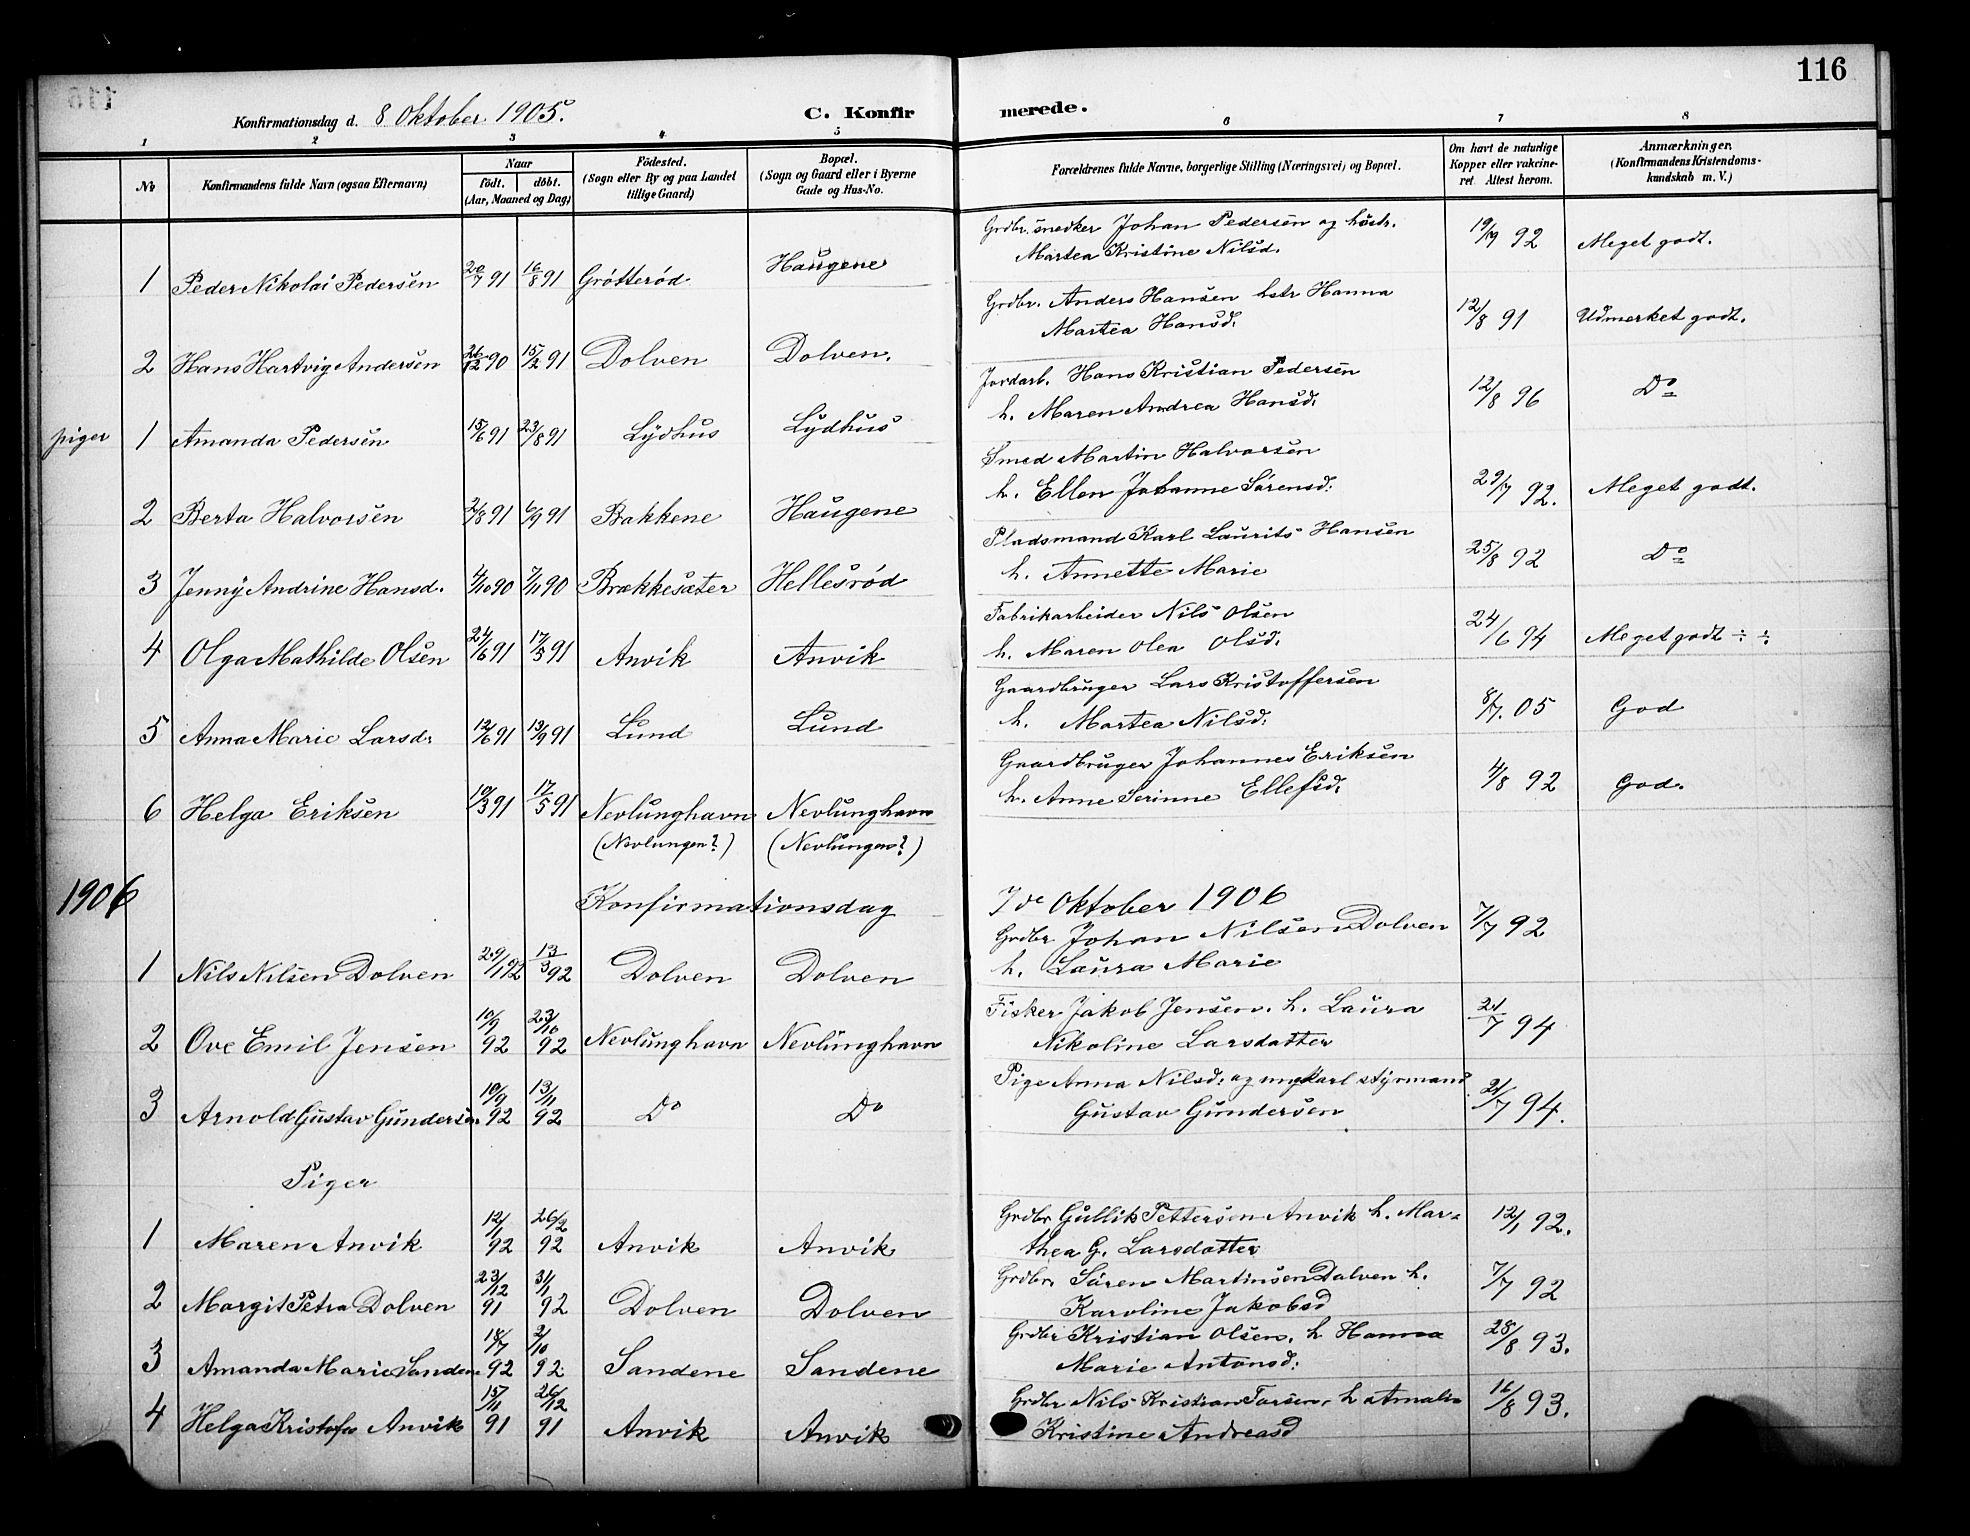 116
Konfirmationsdag d. 8 Oktober 1905. C. Konfirmerede.
1 2 3 4 5 6 7 8
No
Konfirmandens fulde Navn (ogsaa Efternavn)
Naar
födt. döbt.
(Aar, Maaned og Dag)
Födested.
(Sogn eller By og paa Landet
tillige Gaard)
Bopæl.
(Sogn og Gaard eller i Byerne
Gade og Hus-No.
Forældrenes fulde Navne, borgerlige Stilling (Næringsvei) og Bopæl.
Om havt de naturlige
Kopper eller vakcine-
ret. Attest herom.
Anmærkninger.
(Konfirmandens Kristendoms-
kundskab m. V.)
Grdbr. snedker Johan Pedersen og hustr.
Martea Kristine Nilsd.
1 Peder Nikolai Pedersen 20/7 91 16/8 91 Grötteröd Haugene 19/9 92 Meget godt.
Grdbr. Anders Hansen hstr Hanna
Martea Hansd.
2 Hans Hartvig Andersen 26/12 90 15/2 91 Dolven Dolven. 12/8 91 Udmerket godt.
Jordarb. Hans Kristian Pedersen
h. Maren Andrea Hansd.
piger 1 Amanda Pedersen 15/6 91 23/8 91 Lydhus Lydhus 12/8 96 Do
Smed Martin Halvorsen
h. Ellen Johanne Sörensd.
2 Berta Halvorsen 2/8 91 6/9 91 Bakkene Haugene 29/7 92. Meget godt.
Pladsmand Karl Laurits Hansen
h. Annette Marie
3 Jenny Andrine Hansd. 4/10 90 7/11 90 Brækkesæter Hellesröd 25/8 92 Do
Fabrikarbeider Nils Olsen
h. Maren Olea Olsd.
4 Olga Mathilde Olsen 24/6 91 17/5 91 Anvik Anvik 24/6 94 Meget godt ÷ ÷
Gaardbruger Lars Kristoffersen
h. Martea Nilsd.
5 Anna Marie Larsd. 12/6 91 13/9 91 Lund Lund 8/7. 05 God
Gaardbruger Johannes Eriksen
h. Anne Serinne Ellefsd.
6 Helga Eriksen 10/3 91 17/5 91 Nevlunghavn Nevlunghavn 4/8 92 God.
(Nevlungen?) (Nevlungen?)
1906 Konfirmationsdag 7de Oktober 1906
Grdbr Johan Nilsen Dolven
h. Laura Marie
1 Nils Nilsen Dolven 29/1 92 13/3 92 Dolven Dolven 7/7 92
Fisker Jakob Jensen. h. Laura
Nikoline Larsdatter
2 Ove Emil Jensen 10/9 92 23/10 92 Nevlunghavn Nevlunghavn 21/7 94
Pige Anna Nilsd. og ungkarl styrmand
Gustav Gundersen
3 Arnold Gustav Gundersen 10/9 92 13/11 92 Do Do 21/7 94.
Piger
Grdbr Gullik Pettersen Anvik h. Mar-
thea G. Larsdatter
1 Maren Anvik 12/1 92 26/2 92 Anvik Anvik 12/1 92.
Grdbr Sören Martinsen Dalven h.
Karoline Jakobsd
2 Margit Petra Dolven 23/12 91 31/1 92 Dolven Dolven 7/7 92
Grdbr Kristian Olsen. h Hanna
Marie Antonsd.
3 Amanda Marie Sanden 18/7 92 2/10 92 Sandene Sandene 28/8 93.
Grdbr Nils Kristian h Amalie
Kristine Andreasd
4 Helga Anvik 15/11 91 26/12 91 Anvik Anvik 16/8 93.